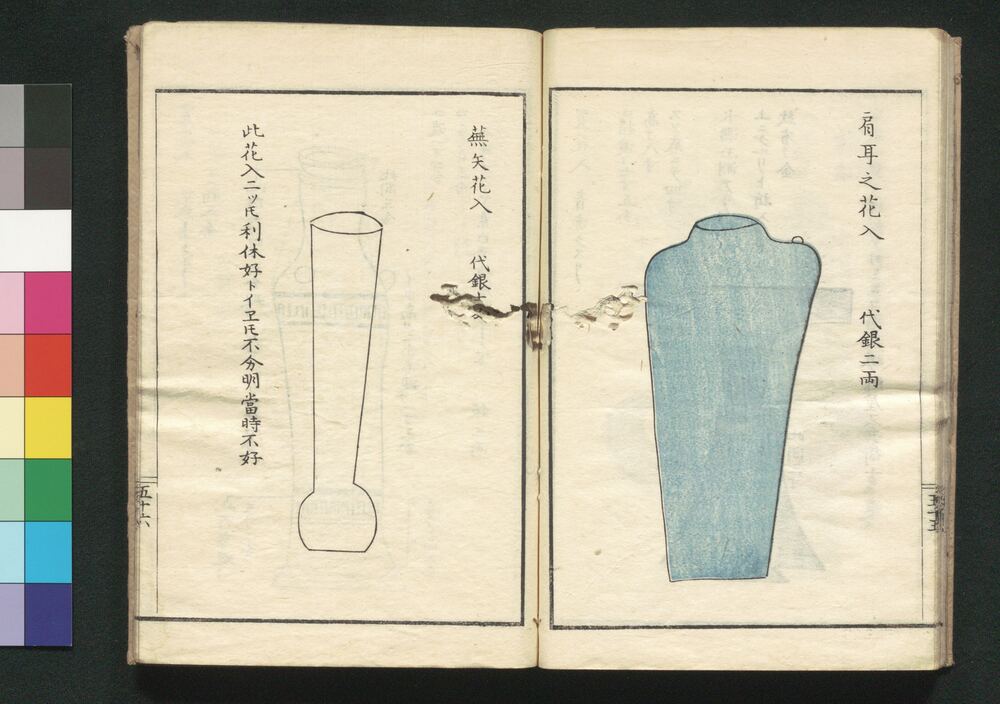 肩耳之花入 代銀二両
五十五
蕪矢花入 代銀十
此花入二ツ𪜈利休好トイヱ𪜈不分明當時不好
五十六